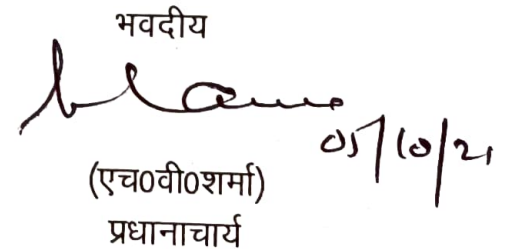 भवदीय
05/10/21
(एच0वी0शर्मा)
प्रधानाचार्य